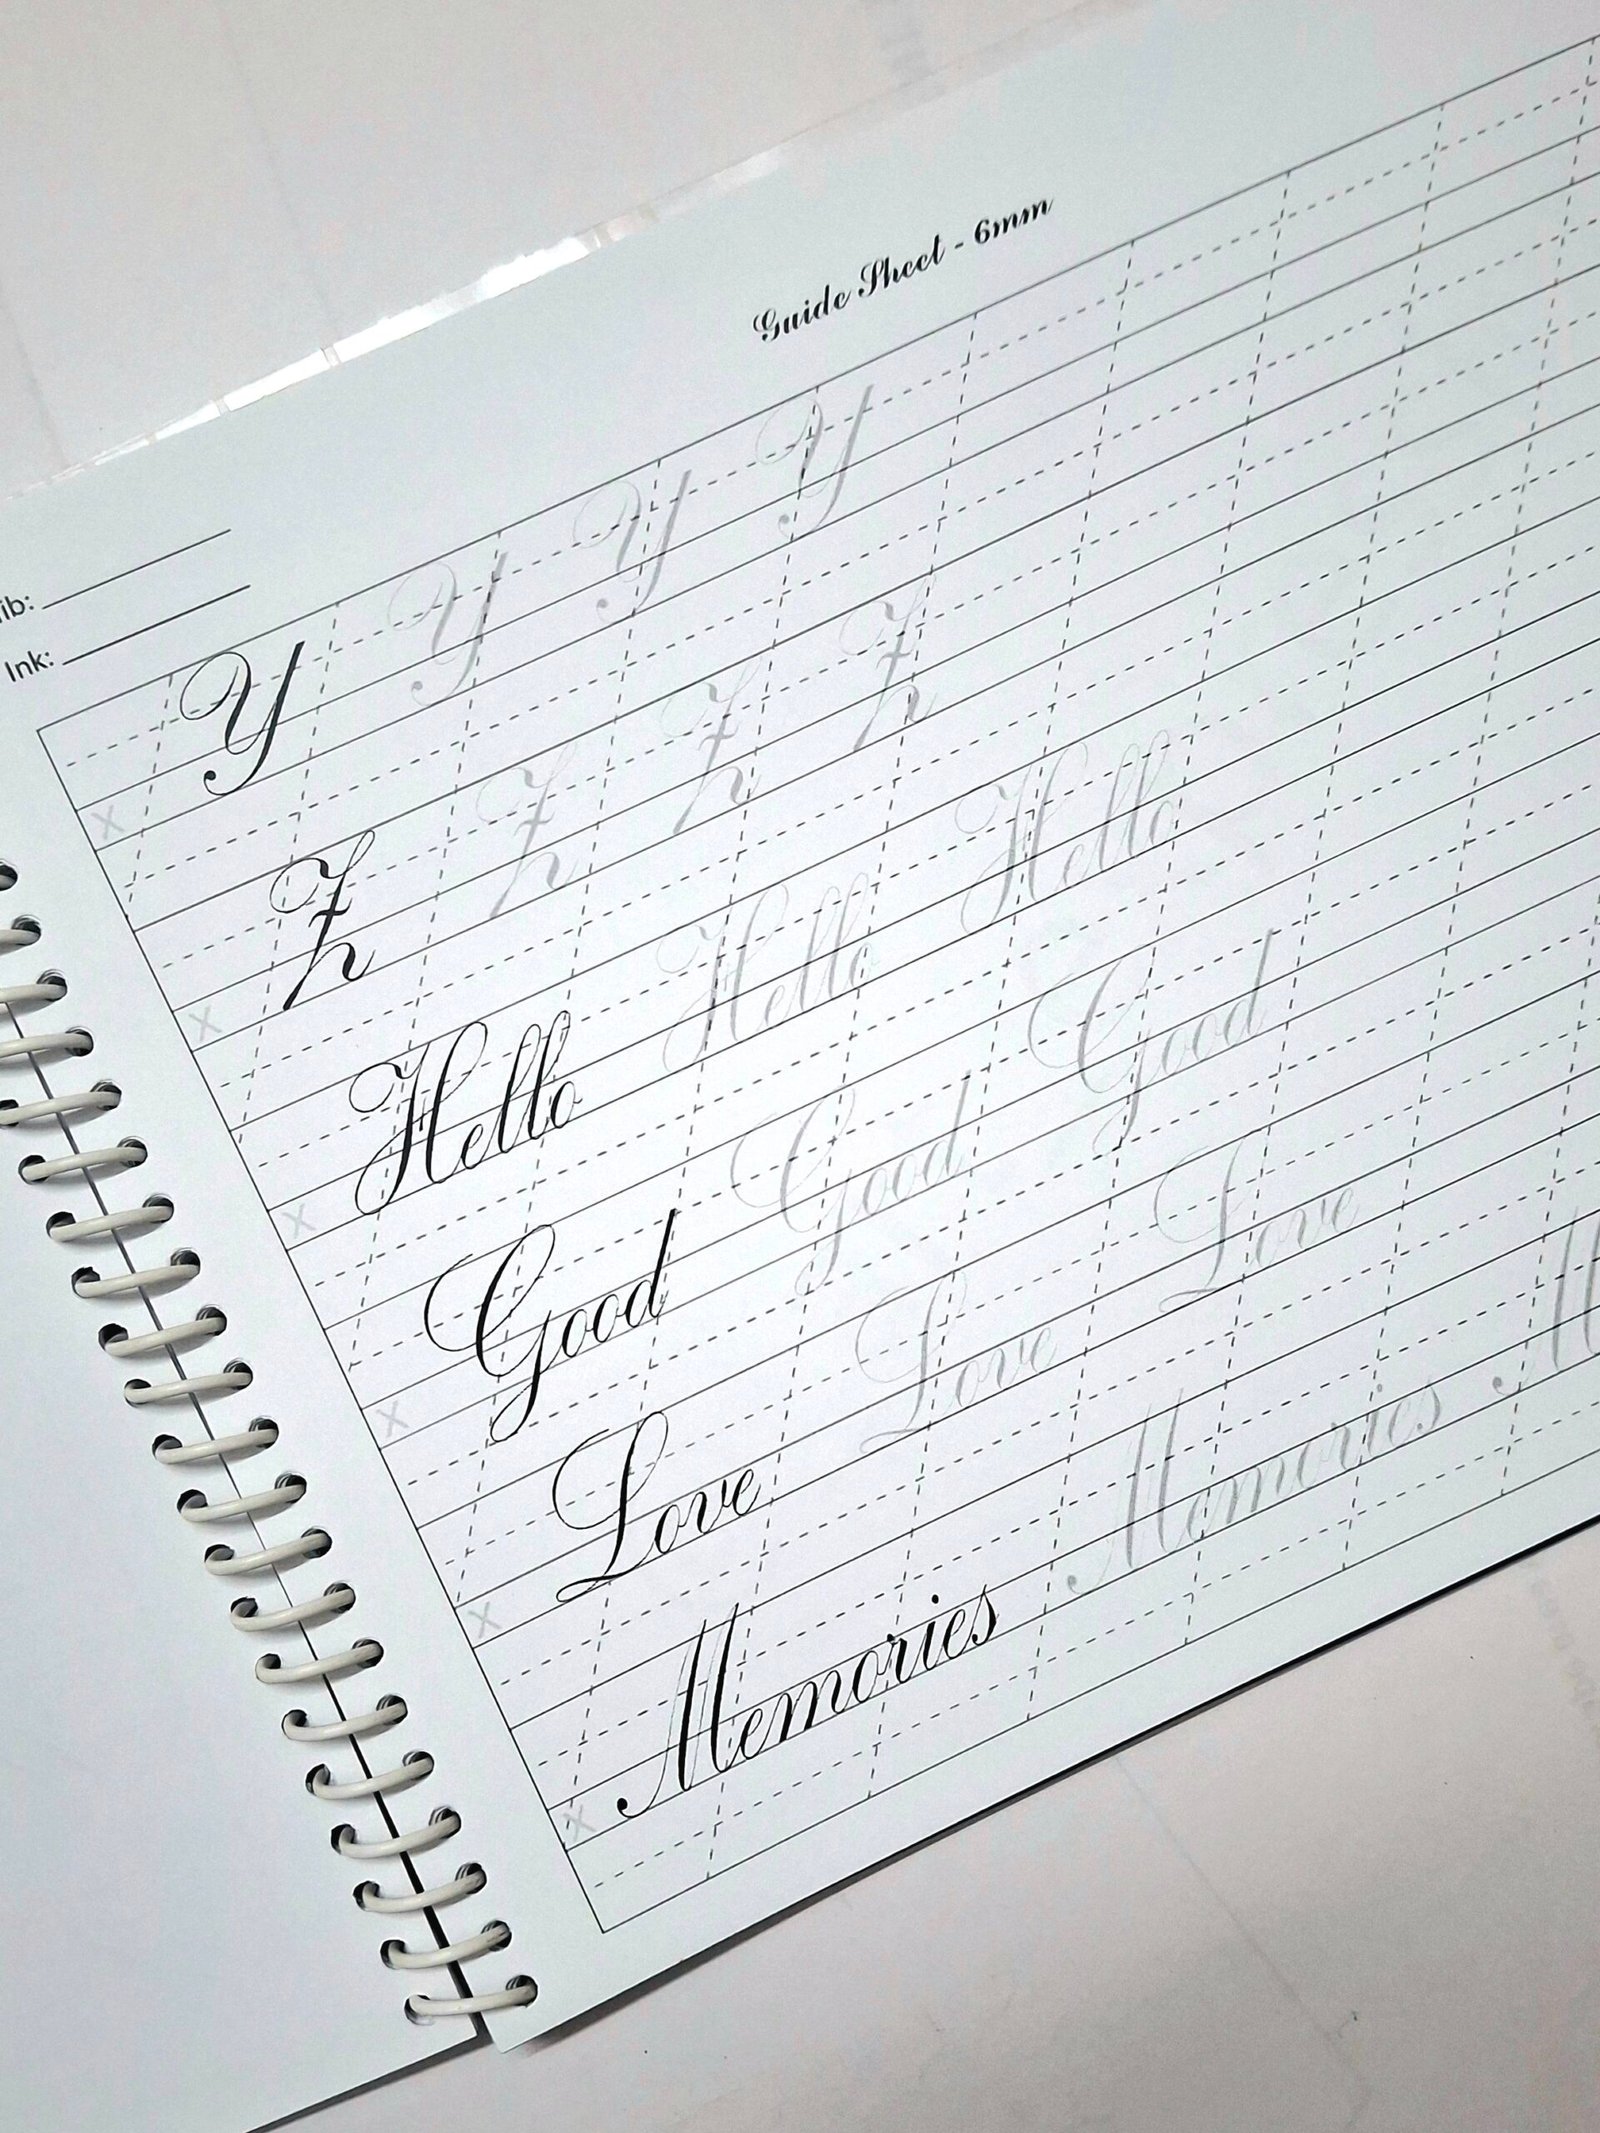 Guide Sheet - 6mm
ib:
Ink:
Y Y Y Y
x
Z Z Z Z
x
Hello Hello Hello
x
Good Good Good
x
Love Love Love
x
Memories Memories M
x